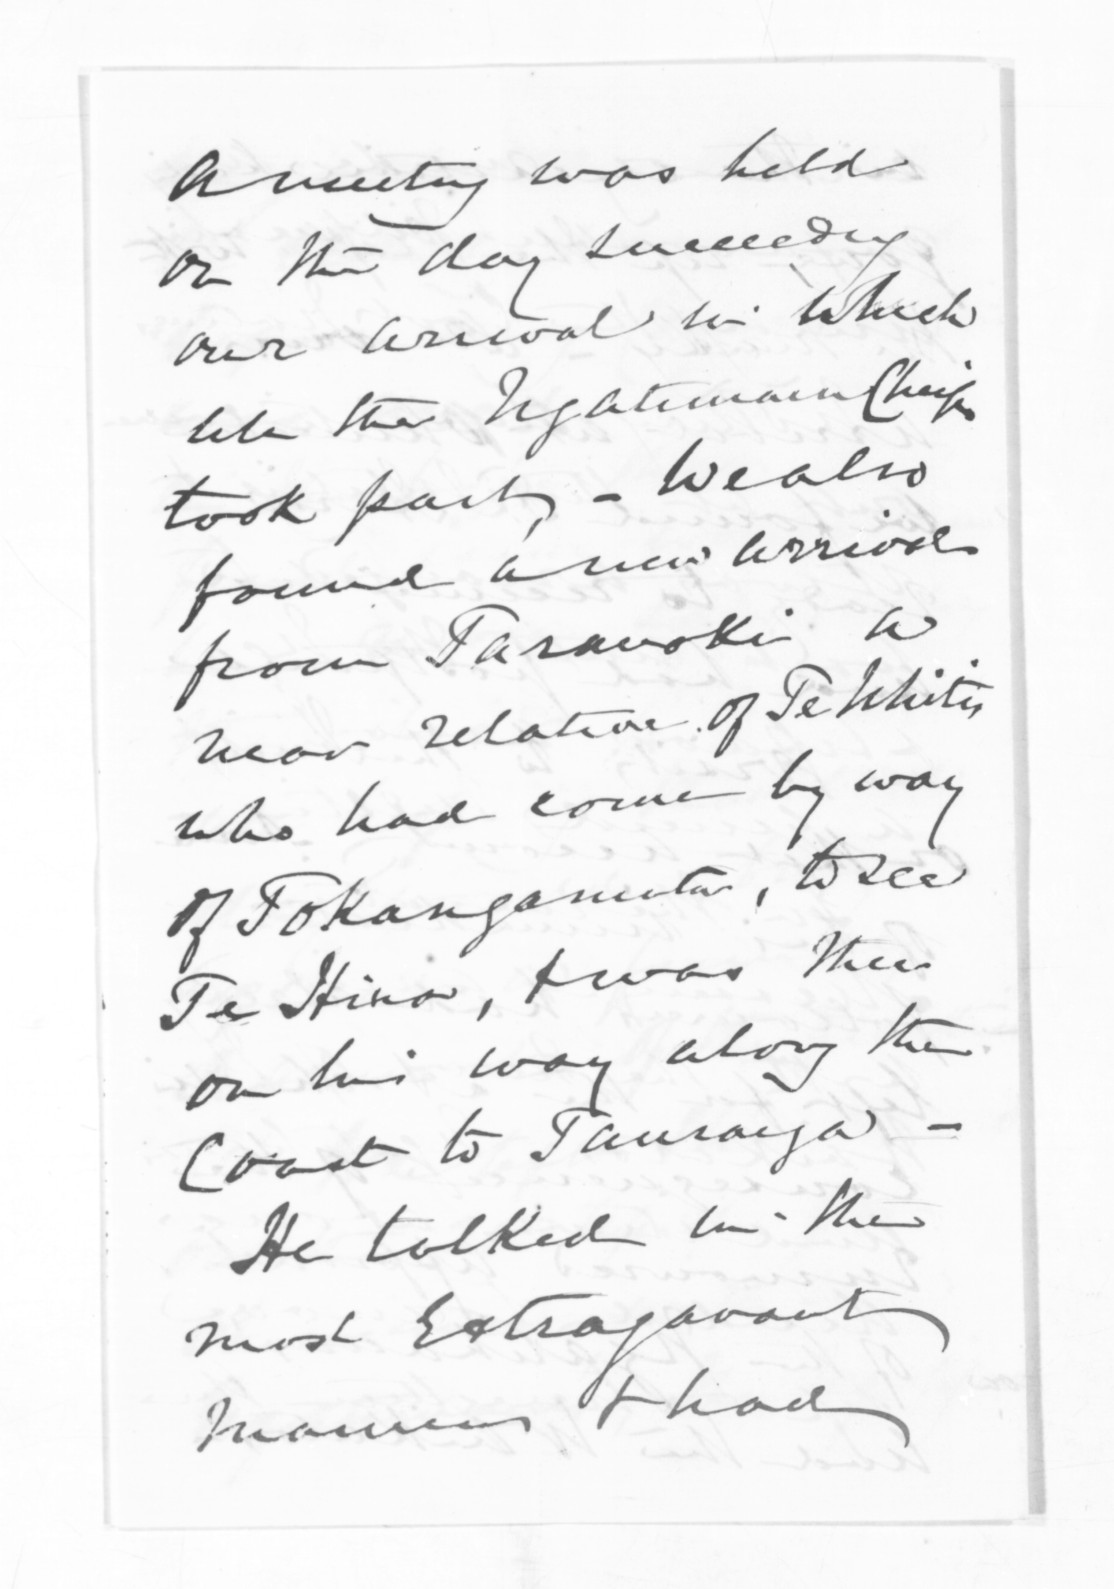 A meeting was held
on the day succeeding
our arrival in which
all the Ngatimaru Chiefs
took part, - We also
found a new arrival
from Taranaki a
near relative of Te Whitis
who had come by way
of Tokangamutu, to see
Te Hira, & was then
on his way along the
Coast to Tauranga -
He talked in the
most Extragavant
manner & had